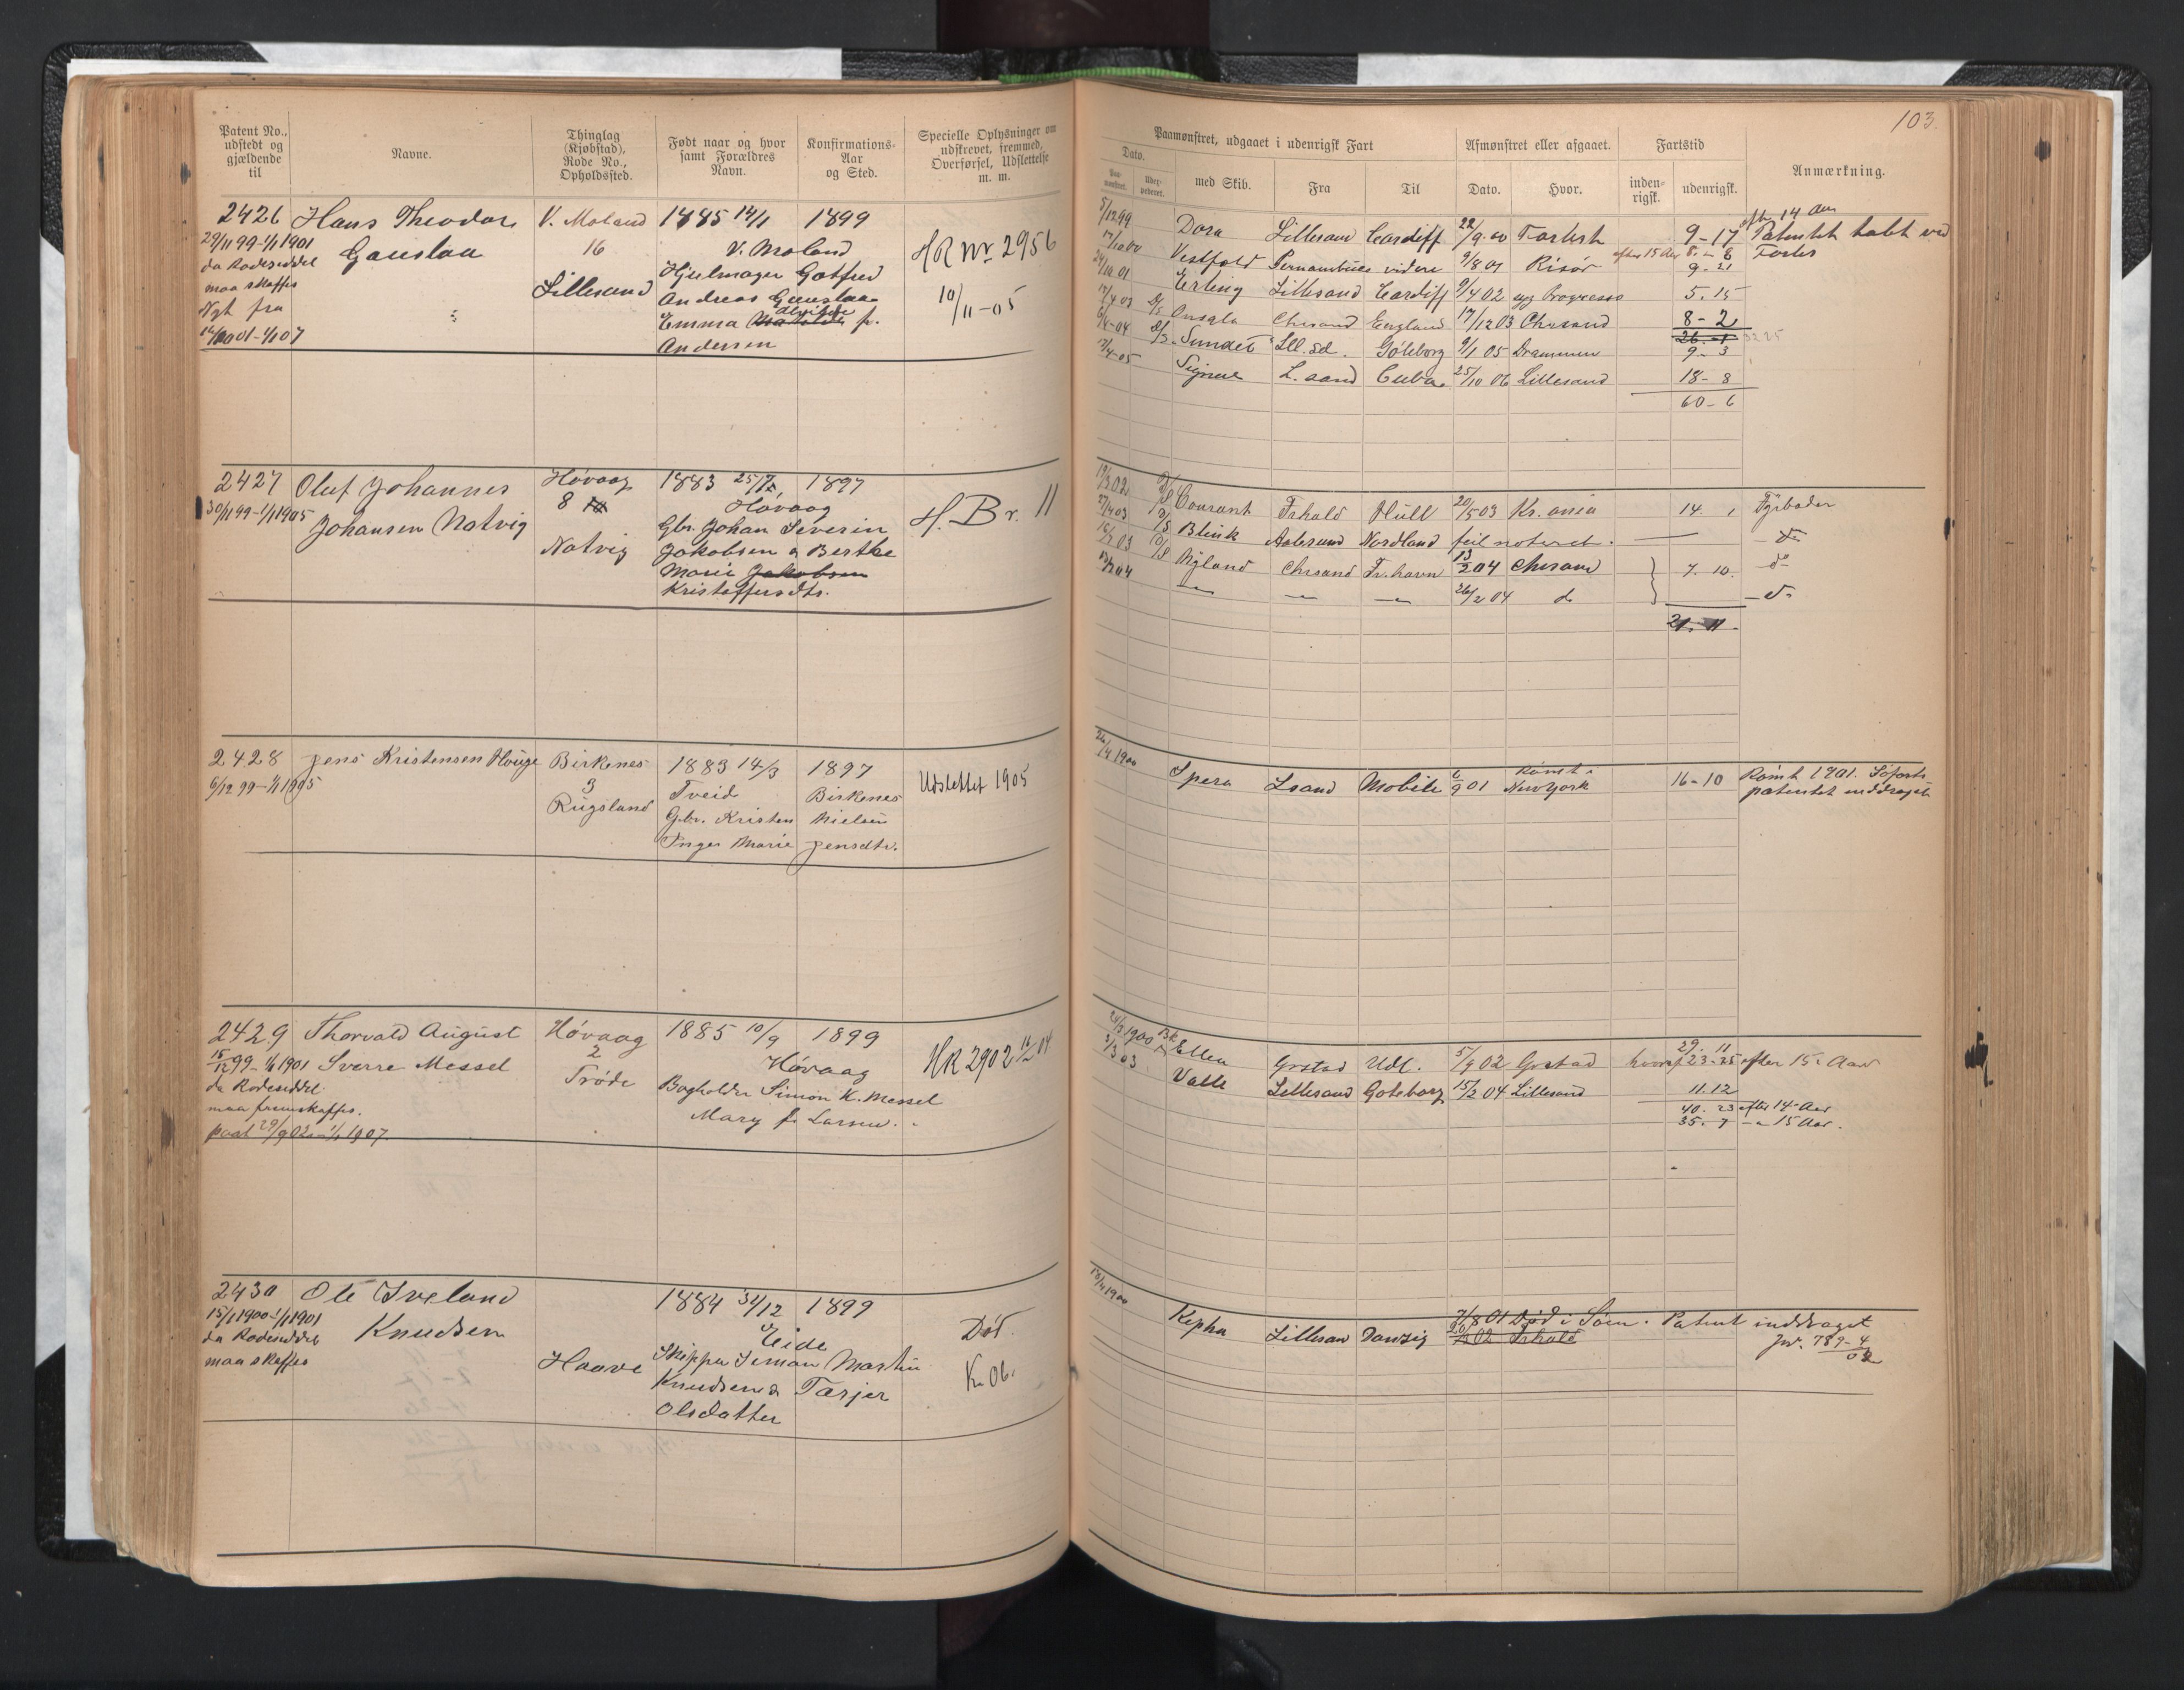 Patent No.,
udstedt og
gjældende
til
Navne.
Thinglag
(Kjøbstad),
Rode No.,
Opholdssted.
Født naar og hvor
samt Forældres
Navn.
Konfirmations-
Aar
og Sted.
Specielle Oplysninger om
udskrevet, fremmed,
Overførsel, Udslettelse
m. m.
2426 Hans Theodor V. Moland 1885 14/1 1899
29/11 99-1/1 1901 Gauslaa 16 V. Moland HR Nr 2956
da Rodeseddel Hjulmager Gotfred
maa skaffes Lillesand Andreas Gauslaa 10/11-05
Nyt fra Emma Matilde f.
01-1/1 07 Andersen
2427 Oluf Johannes Høvaag 1883 25/12 1897
30/11 99-1/1 1905 Johansen Natvig 8 Høvaag H. Br. 11
Natvig Gbr. Johan Severin
Jakobsen & Berthe
Marie Jakobsen
Kristoffersdtr.
2428 Jens Kristensen Houge Birkenes 1883 14/3 1897 Udslettet 1905
6/12 99-1/1 1905 3 Tveid Birkenes
Rugsland Gbr. Kristen Nielsen
Inger Marie Jensdtr.
2429 Thorvald August Høvaag 1885 10/9 1899
15/12 99-1/1 1901 Sverre Messel 2 Høvaag HR 2902 04
da Rodeseddel Trøde Bogholder Simon K. Messel
maa fremskaffes. Mary f. Larsen.
29/9 02-1/1 1907
2430 Ole Iveland 1884 31/12 1899
15/1 1900-1/1 1901 Knudsen Eide Død.
da Rodeseddel Skipper Simon Martin
maa skaffes Haave Knudsen & Tarjer K. 06.
Olsdatter
103.
Paamønstret, udgaaet i udenrigsk Fart
Afmønstret eller afgaaet.
Fartstid
Anmærkning.
Dato.
med Skib.
Fra
Til
Dato.
Hvor.
inden-
rigsk.
udenrigsk.
efter 14 Aar
5/12 99 Dora Lillesand Cardiff 22/9 00 9-17 Patentet tabt ved
Vestfold Pernambuco videre 9/8 01 Risør efter 15 Aar 8 - 8 Forlis
9 - 21
01 Erling Lillesand Cardiff 9/4 02 Progresso 5. 15
03 D/S Onsala Chrsand England 17/12 03 Chrsand 8 - 2
26 - 1
6/4-04 Sundet Lll.sd. Göteborg 9/1 05 Drammen 9 - 3
05 Signal L.sand Cuba 25/10 06 Lillesand 18 - 8
60 - 6
02 Courant Frhald Hull 20/5 03 Kr.ania 14. 1 Fyrbøder
03 Blink Aalesund Nordland feil noteret. — do
03 Rygland Chrsand Fr.havn 13/2 04 Chrsand 7. 10. do
04 — — — 26/2 04 do — do
21. 11
1900 Spera Lsand Mobile 6/9 01 Rømt i New York 16-10 Rømt 1901. Søfarts
patentet inddraget
1900 Ellen Grstad Udl. 5/9 02 Grstad 29. 11
hvoraf 23-25 efter 15 Aar
3/3 03 Valle Lillesand Goteborg 15/2 04 Lillesand 11.12
40. 23 efter 14 Aar
35. 7 - " 15 Aar.
1900 Kepha Lillesan Danzig 7/8 01 Død i Søen. Patent inddraget
02 Frhald Jnr. 789-4/02